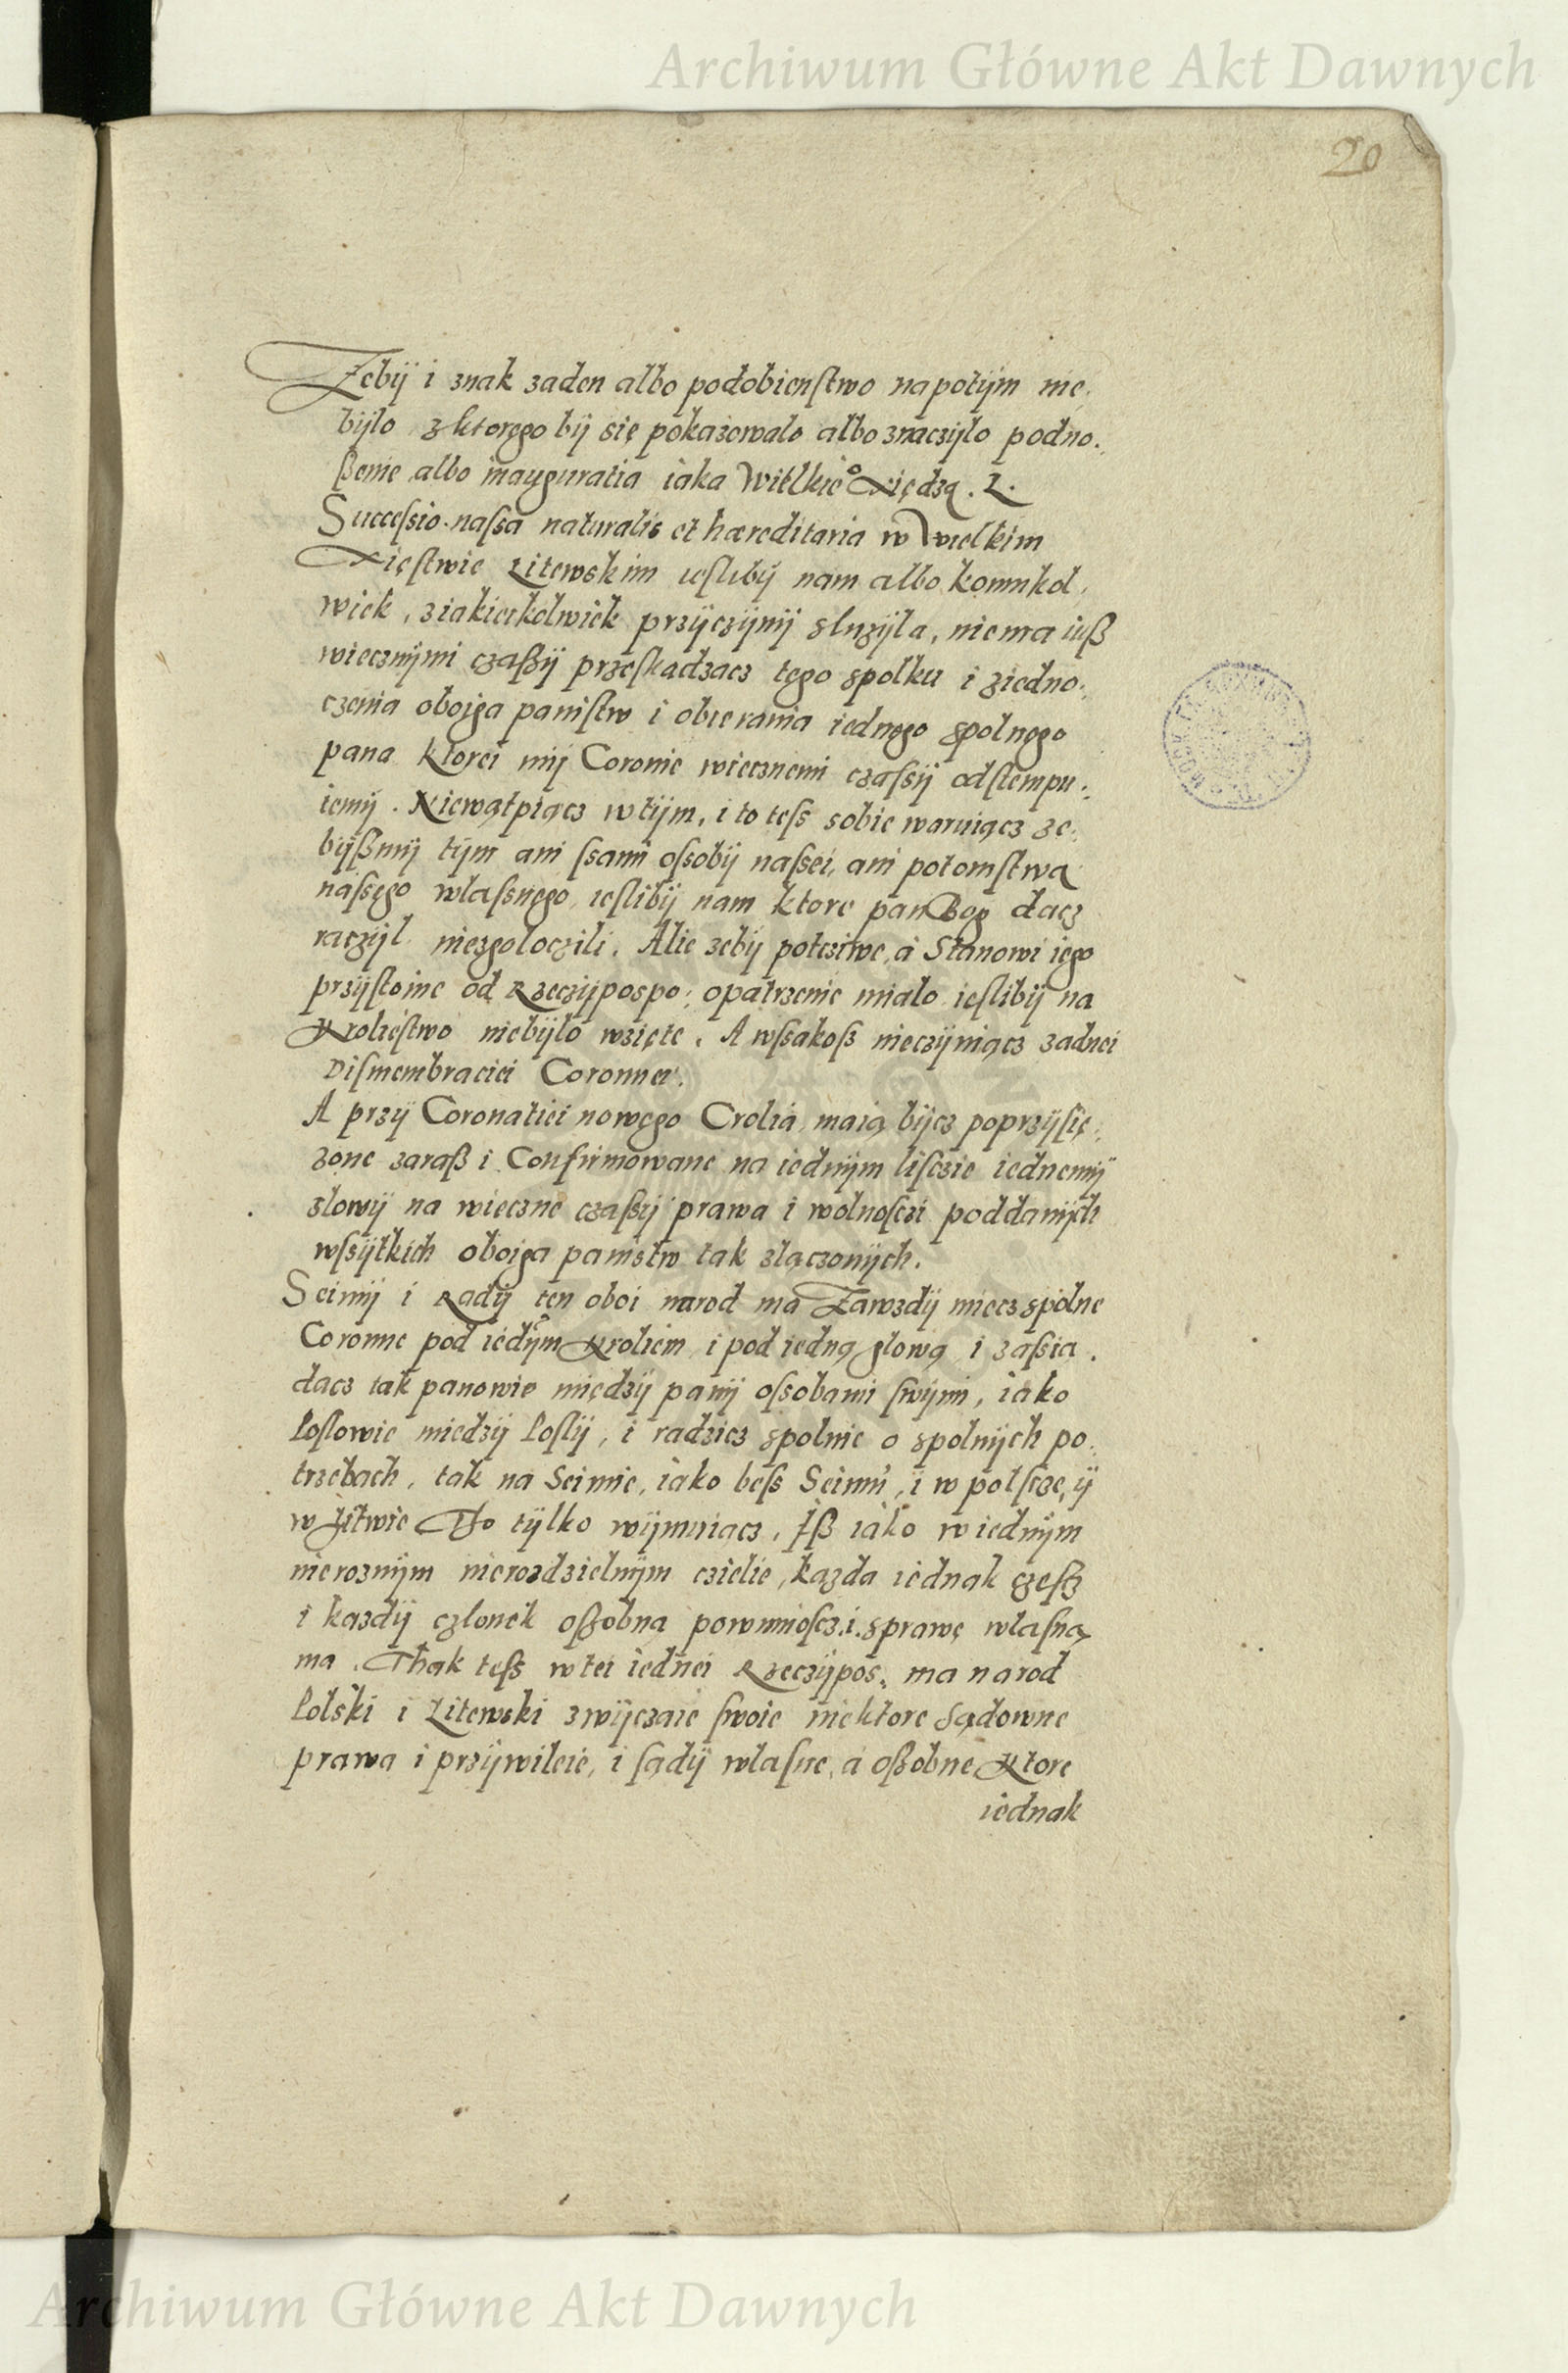 Archiwum Główne Akt Dawnych
20
Zebÿ i znak zaden albo podobienſtwo napotÿm nie,
bÿlo z ktorego bÿ się pokazowalo albo znaczÿlo podno,
ßenie albo inauguratia iaka Wielkie° Xiędza. L.
Succeſsio naſsa naturalis et hæreditaria w Wielkim
Xięſtwie Litewskim ieſlibÿ nam albo komukol,
wiek, ziakieikolwiek przÿczÿnÿ sluzÿla, niema iuß
wiecznÿmi czaßÿ przeſkadzacz tego spolku i ziedno,
czenia oboiga panſtw i obierania iednego spolnego
pana ktorei mÿ Coronie wiecznemi czaſsÿ odſtempu,
iemÿ. Niewątpiącz w tÿm, i to teſs sobie waruiącz ze,
bÿßmÿ tÿm ani ſsami oſsobÿ naſsei, ani potomſtwa
naſsego wlaſsnego, ieſlibÿ nam ktore pan Bog dacz
raczÿl niezgoloczili. Alie zebÿ potcziwe, a Stanowi iego
przÿſtoine od Rzeczÿpospo: opatrzenie mialo ieſlibÿ na
Krolieſtwo niebÿlo wzięte. A wſsakoſs nieczÿniącz zadnei
Diſmembraciei Coronnei.
A przÿ Coronatiei nowego Crolia maią bÿcz poprzÿſię,
zone zaraß i Confirmowane na iednÿm liſczie iednemÿ
slowÿ na wieczne czaſsÿ prawa i wolnoſczi poddanÿch
wſsÿtkich oboiga panstw tak zlączonÿch.
Seimÿ i Radÿ ten oboi narod ma Zawzdÿ miecz spolne
Coronne pod iedÿm Kroliem i pod iedną glową i zaſsia,
dacz tak panowie międzÿ panÿ oſsobami ſwÿmi, iako
Poſlowie miedzÿ Poſlÿ, i radzicz spolnie o spolnÿch po,
trzebach, tak na Seimie, iako beſs Seimu, i w polſcze, ÿ
w Litwie To tÿlko wÿmuiącz, Iß iako w iednÿm
nieroznÿm nierozdzielnÿm czielie, kazda iednak częſcz
i kazdÿ czlonek oßobną powinnoſcz i sprawę wlaſną
ma. Thak teſs w tei iednei Rzeczÿpos, ma narod
Polski i Litewski zwÿczaie ſwoie niektore Sądowne
prawa i przÿwileie, i ſądÿ wlaſne, a oßobne Ktore
iednak
Archiwum Główne Akt Dawnych